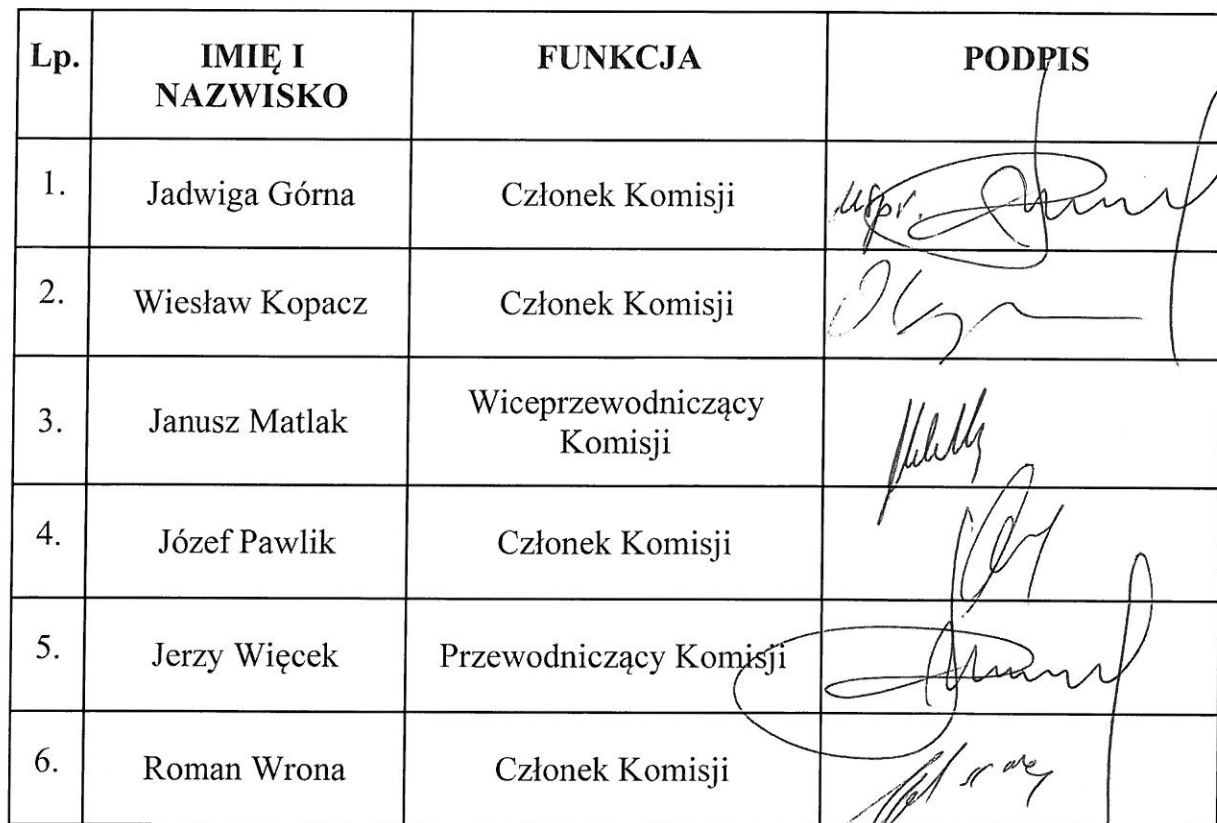 Lp. IMIĘ I NAZWISKO FUNKCJA PODPIS
1. Jadwiga Górna Członek Komisji uspr.
2. Wiesław Kopacz Członek Komisji
3. Janusz Matlak Wiceprzewodniczący Komisji
4. Józef Pawlik Członek Komisji
5. Jerzy Więcek Przewodniczący Komisji
6. Roman Wrona Członek Komisji